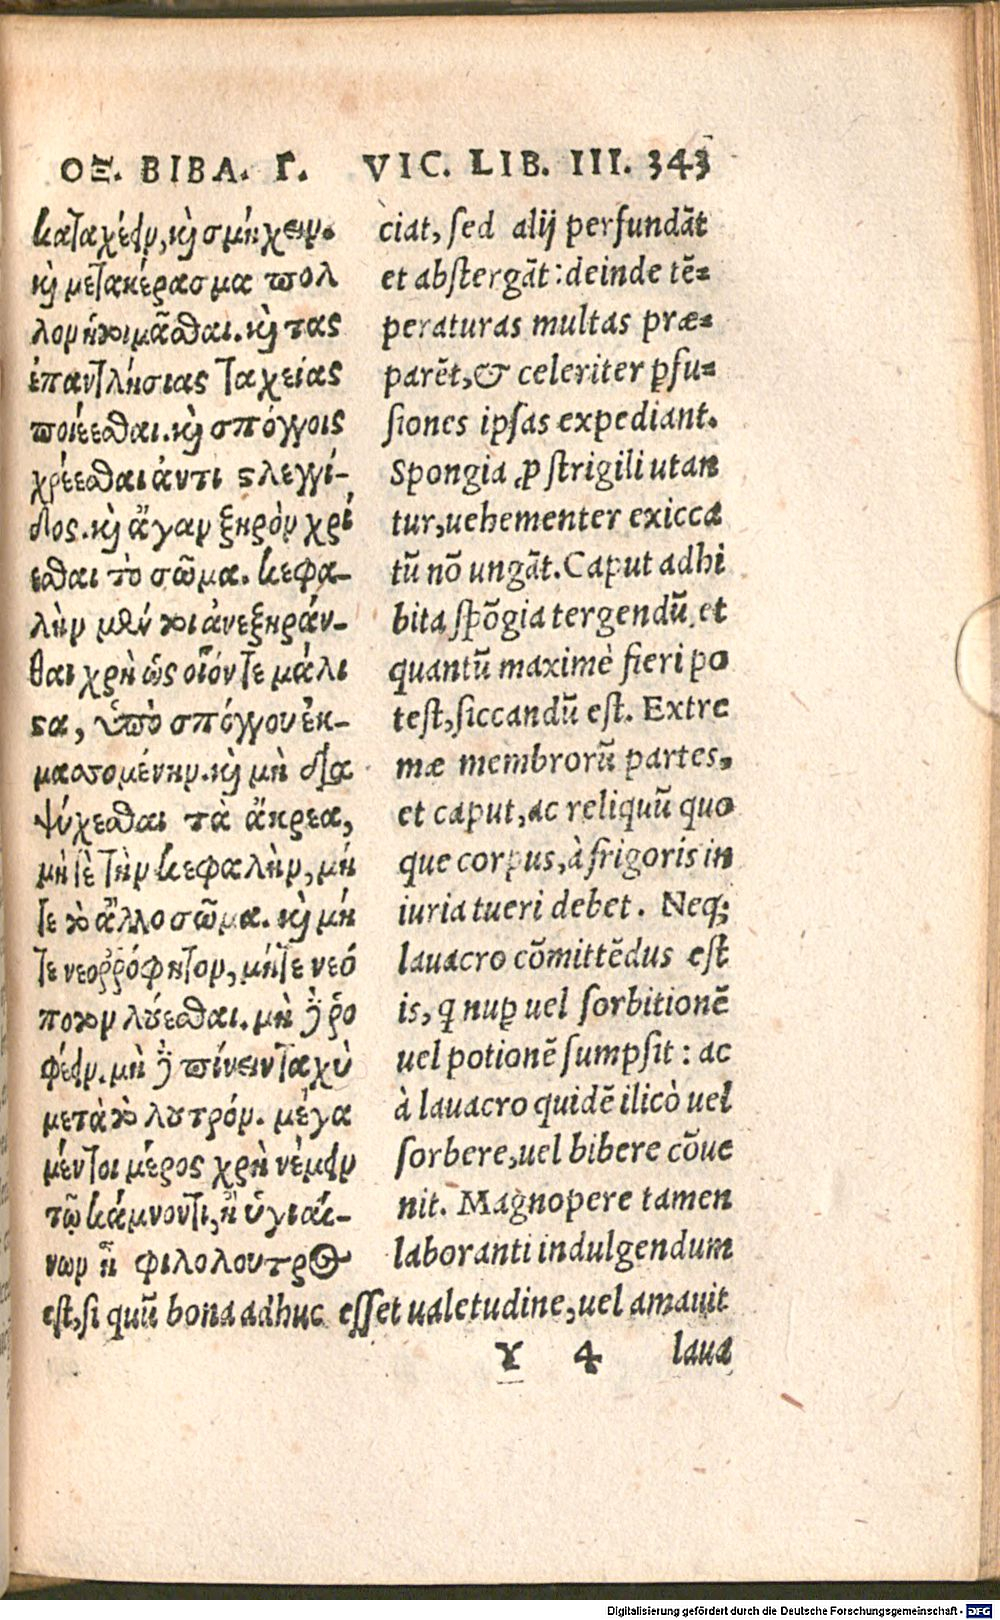 ΟΞ. ΒΙΒΛ. Γ.
καταχέειν, καὶ σμήχειν.
καὶ μετακέρασμα πολ
λὸν ἡτοιμᾶσθαι. καὶ τὰς
ἐπαντλήσιας ταχείας
ποιέεσθαι. καὶ σπόγγοις
χρέεσθαι ἀντὶ στλεγγί-
δος. καὶ ἄγαν ξηρὸν χρί
εσθαι τὸ σῶμα. κεφα-
λὴν μὲν τοι ἀνεξηράν-
θαι χρὴ ὡς οἷόν τε μάλι
στα, ὑπὸ σπόγγου ἐκ-
μασσομένην. καὶ μὴ δια
ψύχεσθαι τὰ ἄκρεα,
μήτε τὴν κεφαλὴν, μή
τε τὸ ἄλλο σῶμα. καὶ μή
τε νεορῤόφητον, μήτε νεό
ποτον λούεσθαι. μὴ δὲ ῥο
φέειν. μὴ δὲ πίνειν ταχὺ
μετὰ τὸ λουτρόν. μέγα
μέντοι μέρος χρὴ νέμειν
τῷ κάμνοντι, ἢν ὑγιαί-
νων ᾖ φιλόλουτρος
VIC. LIB. III. 343
ciat, sed alij perfundāt
et abstergāt: deinde tē=
peraturas multas præ=
parēt, & celeriter ꝑfu=
siones ipsas expediant.
Spongia ꝓ strigili utan
tur, uehementer exicca
tū nō ungāt. Caput adhi
bita spōgia tergendū, et
quantū maximè fieri po
test, siccandū est. Extre
mæ membrorū partes,
et caput, ac reliquū quo
que corpus, à frigoris in
iuria tueri debet. Neq;
lauacro cōmittēdus est
is, q nuꝑ uel sorbitionē
uel potionē sumpsit: ac
à lauacro quidē ilicò uel
sorbere, uel bibere cōue
nit. Magnopere tamen
laboranti indulgendum
est, si quū bona adhuc esset ualetudine, uel amauit
Y 4 laua
Digitalisierung gefördert durch die Deutsche Forschungsgemeinschaft - DFG